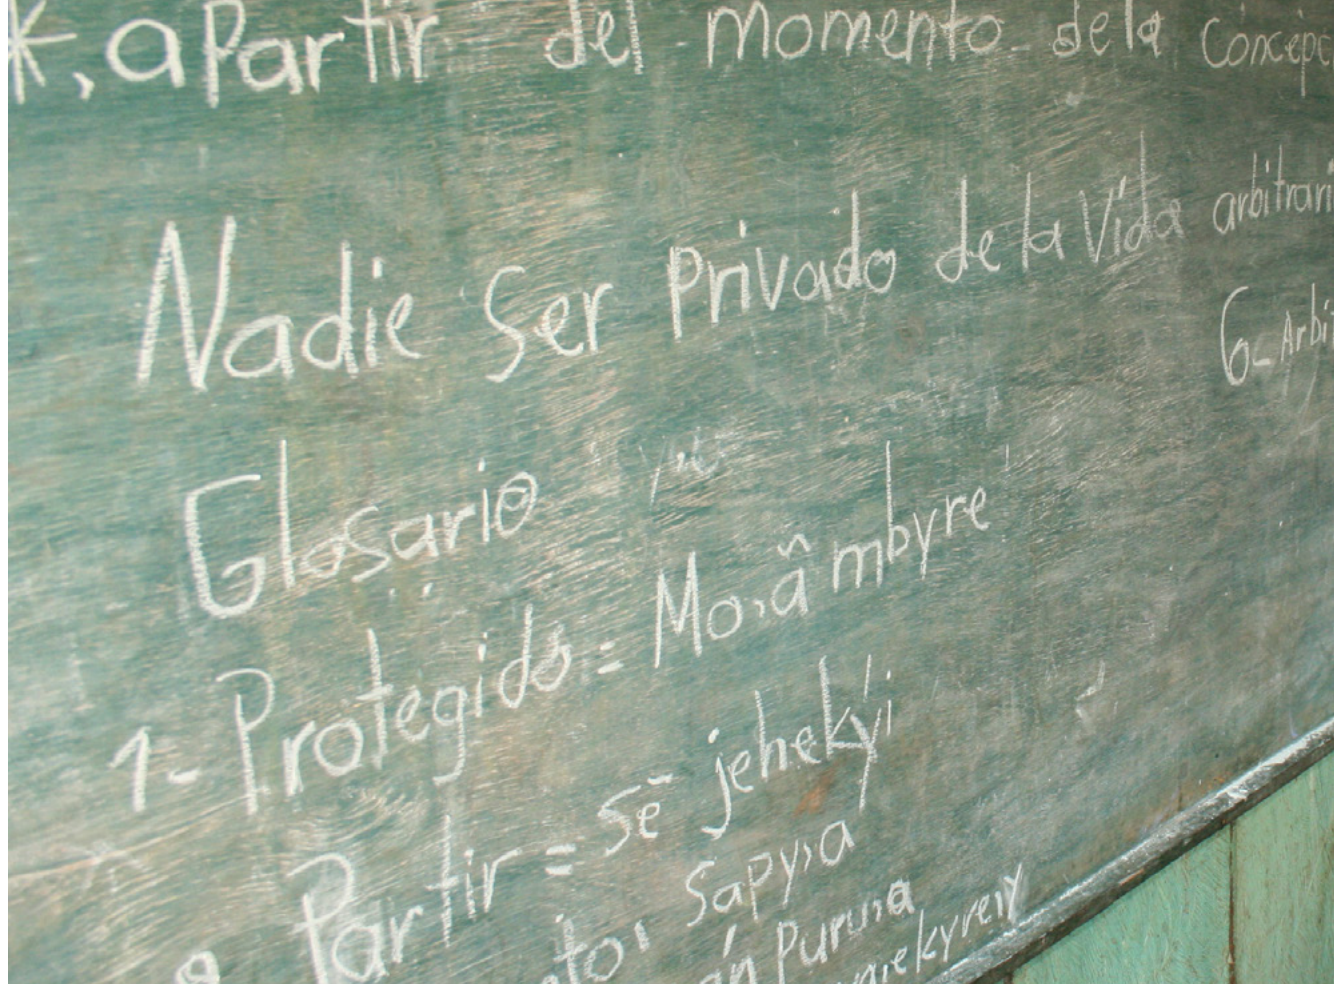 , a Partir del momento de la concepc
Nadie Ser Privado de la Vida arbitrari
6- Arbi
Glosario
1- Protegido = Mo,ã mbyre
Partir = Sẽ jehekýi
nto, Sapy,a
ón Puru,a